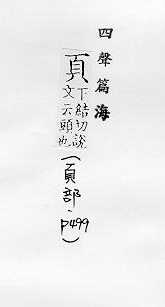 四聲篇海
頁
下結切說
文云頭也
(頁部·p499)